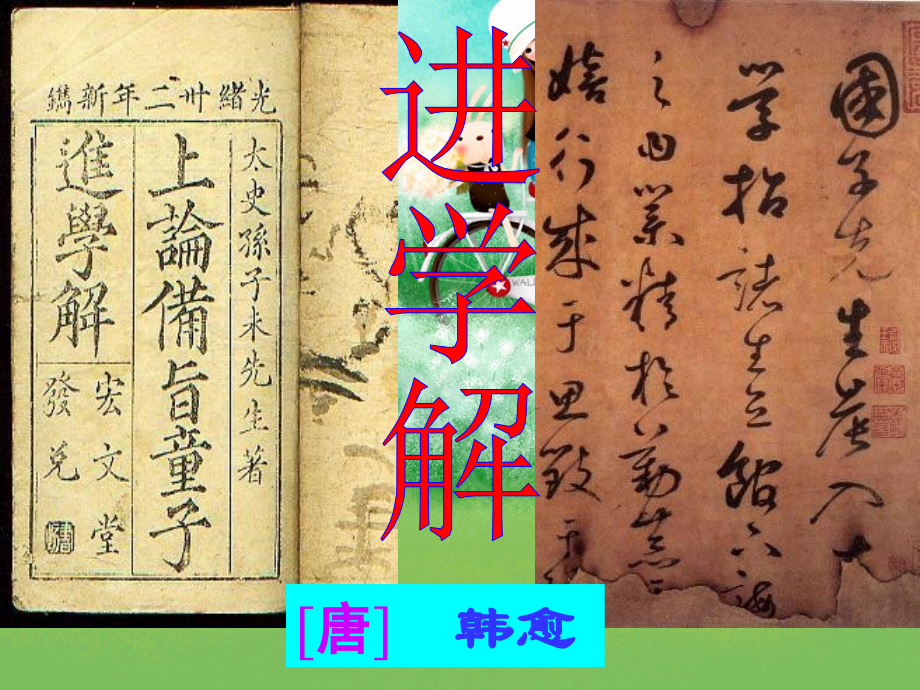 光緒卅二年新鐫
太史孫子未先生著
上論備旨童子
進學解
宏文堂
發兌
进学解
WALL
國子先生晨入大
學招諸生立館下誨
之曰業精於勤荒
嬉行成于思毀于
[唐] 韩愈